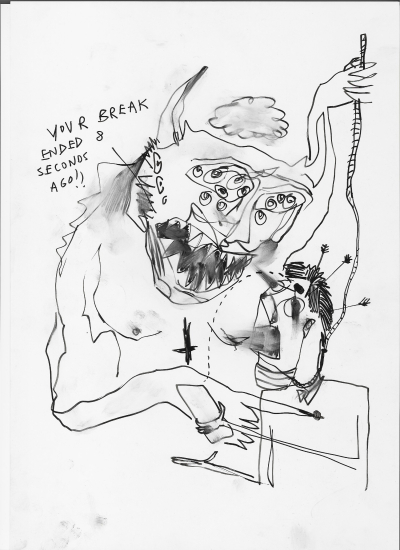 YOUR BREAK
ENDED 8
SECONDS
AGO!!